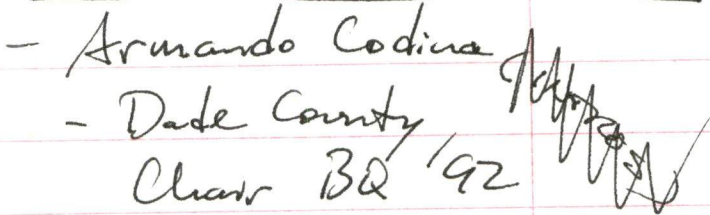 - Armando Codina
- Dade County
Chair BQ '92